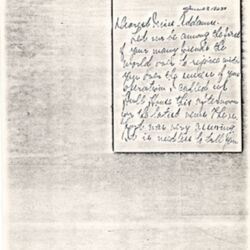 Dearest Miss Addams:
Let me be among the first
of your many friends the
world over to rejoice with
you over the success of your
operation. I called at
Hull House this afternoon
for the latest news. There
was very
It is needless to tell you